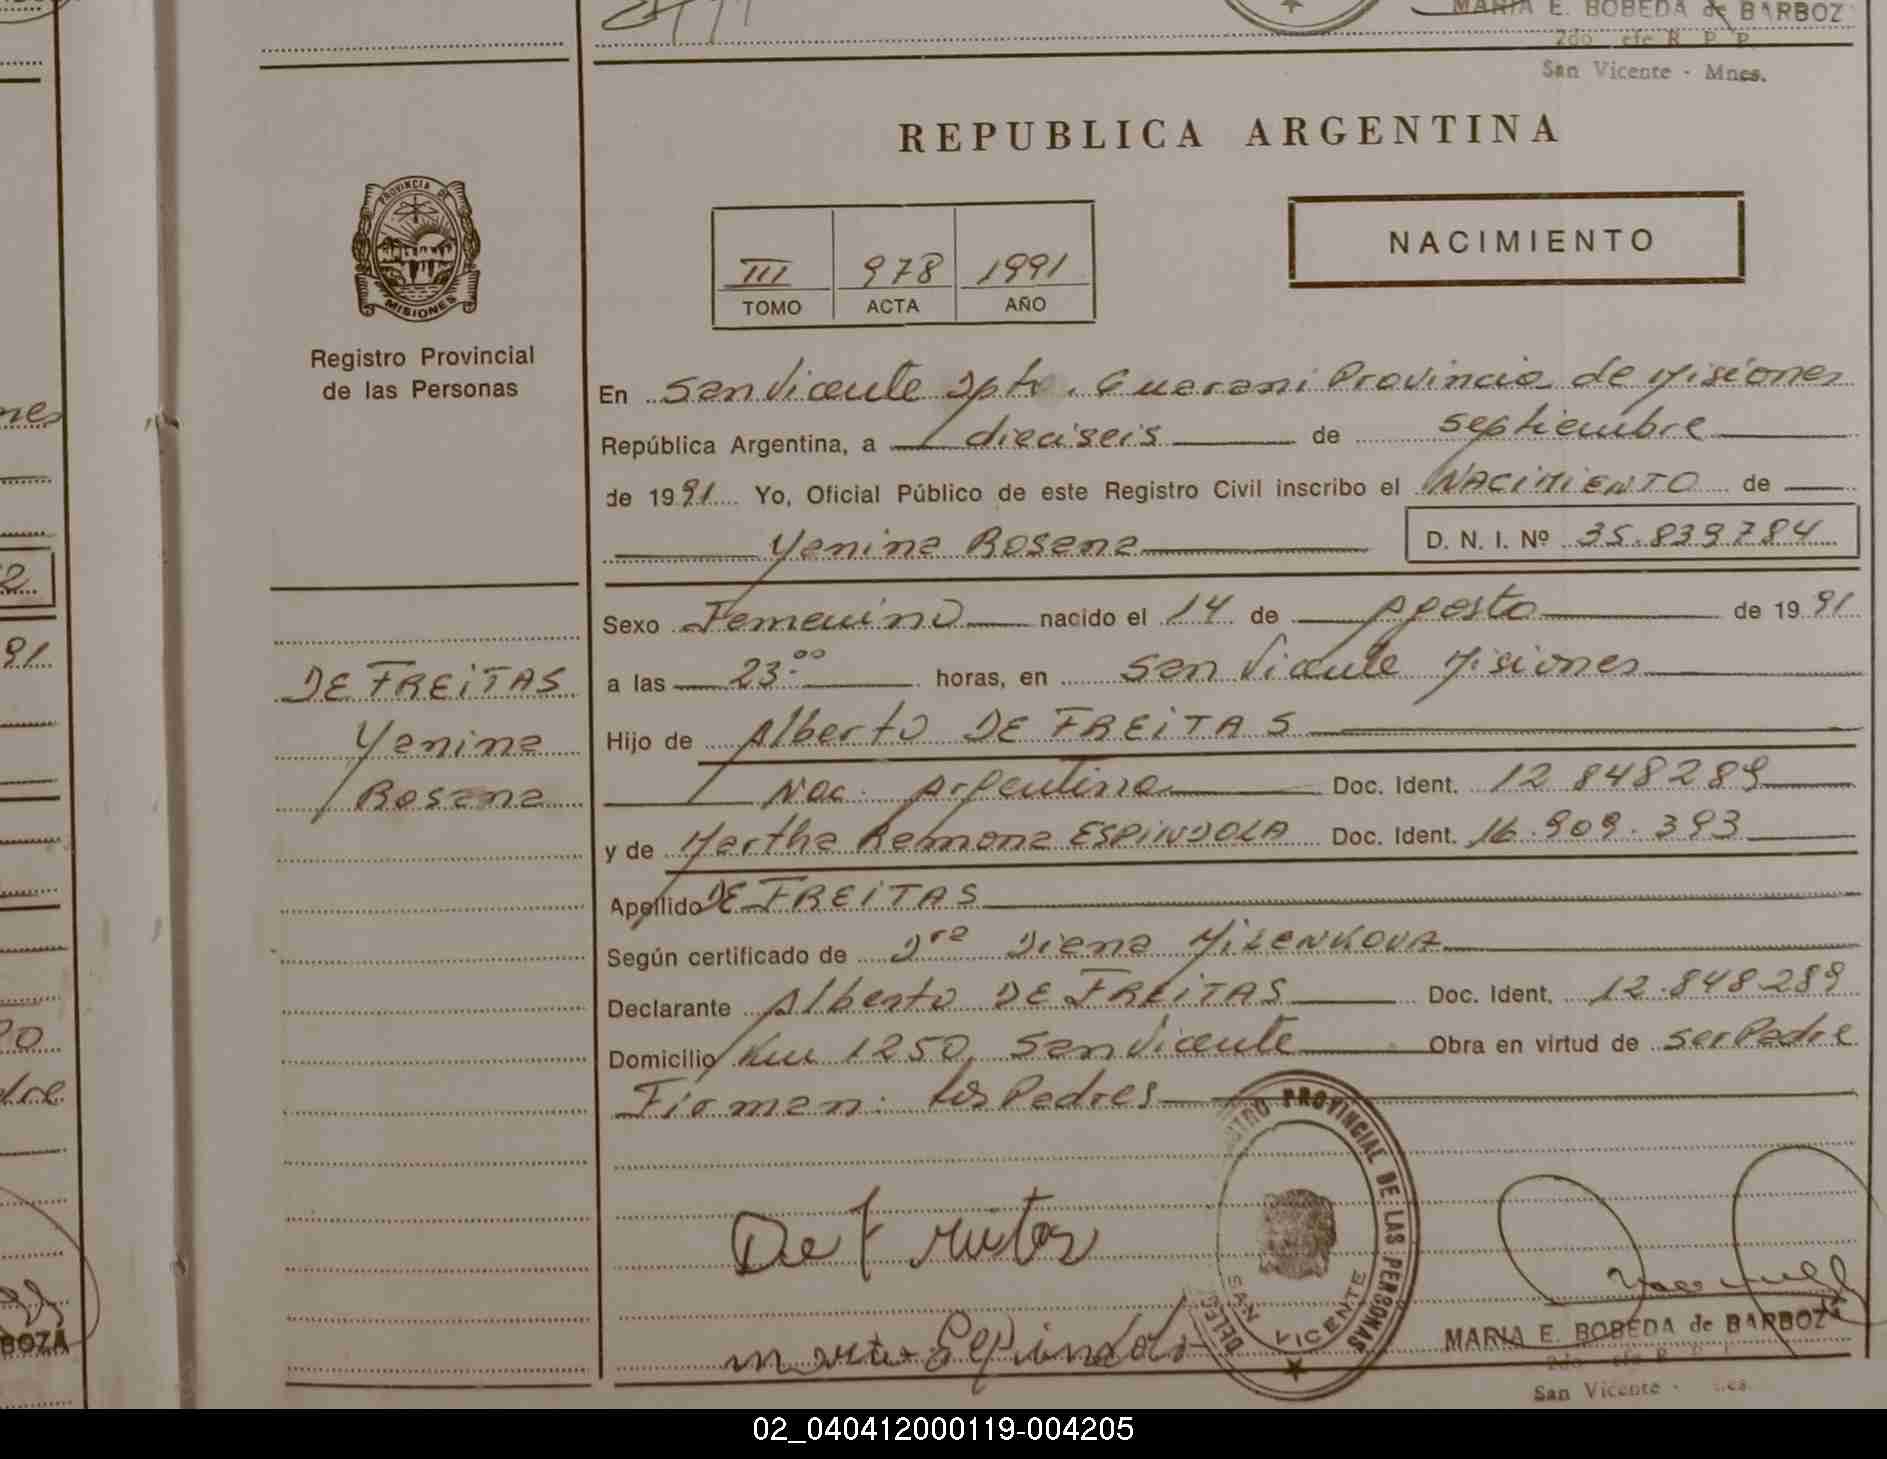 MARIA E. BOBEDA de BARBOZ
2do efe R P P
San Vicente - Mnes.
REPUBLICA ARGENTINA
PROVINCIA DE
MISIONES
Registro Provincial
de las Personas
III 978 1991
TOMO ACTA AÑO
NACIMIENTO
En San Vicente Dpto. Guarani Provincia de Misiones
República Argentina, a dieciseis de septiembre
de 1991 Yo, Oficial Público de este Registro Civil inscribo el NACIMIENTO de
Yanina Rosana D. N. I. Nº 35.839784
Sexo Femenino nacido el 14 de Agosto de 1991
a las 23:00 horas, en San Vicente Misiones
DE FREITAS
Yanina
Rosana
Hijo de Alberto DE FREITAS
Nac. Argentina Doc. Ident. 12 848289
y de Martha Ramona ESPINDOLA Doc. Ident. 16.909.393
Apellido DE FREITAS
Según certificado de Dra Diana MILENKOVA
Declarante Alberto DE FREITAS Doc. Ident. 12.848289
Domicilio Km 1250, San Vicente Obra en virtud de ser Padre
Firman: los Padres
REGISTRO PROVINCIAL DE LAS PERSONAS
SAN VICENTE
MARIA E. BOBEDA de BARBOZA
San Vicente -
nes
2
91
dre
BOZA
02_040412000119-004205